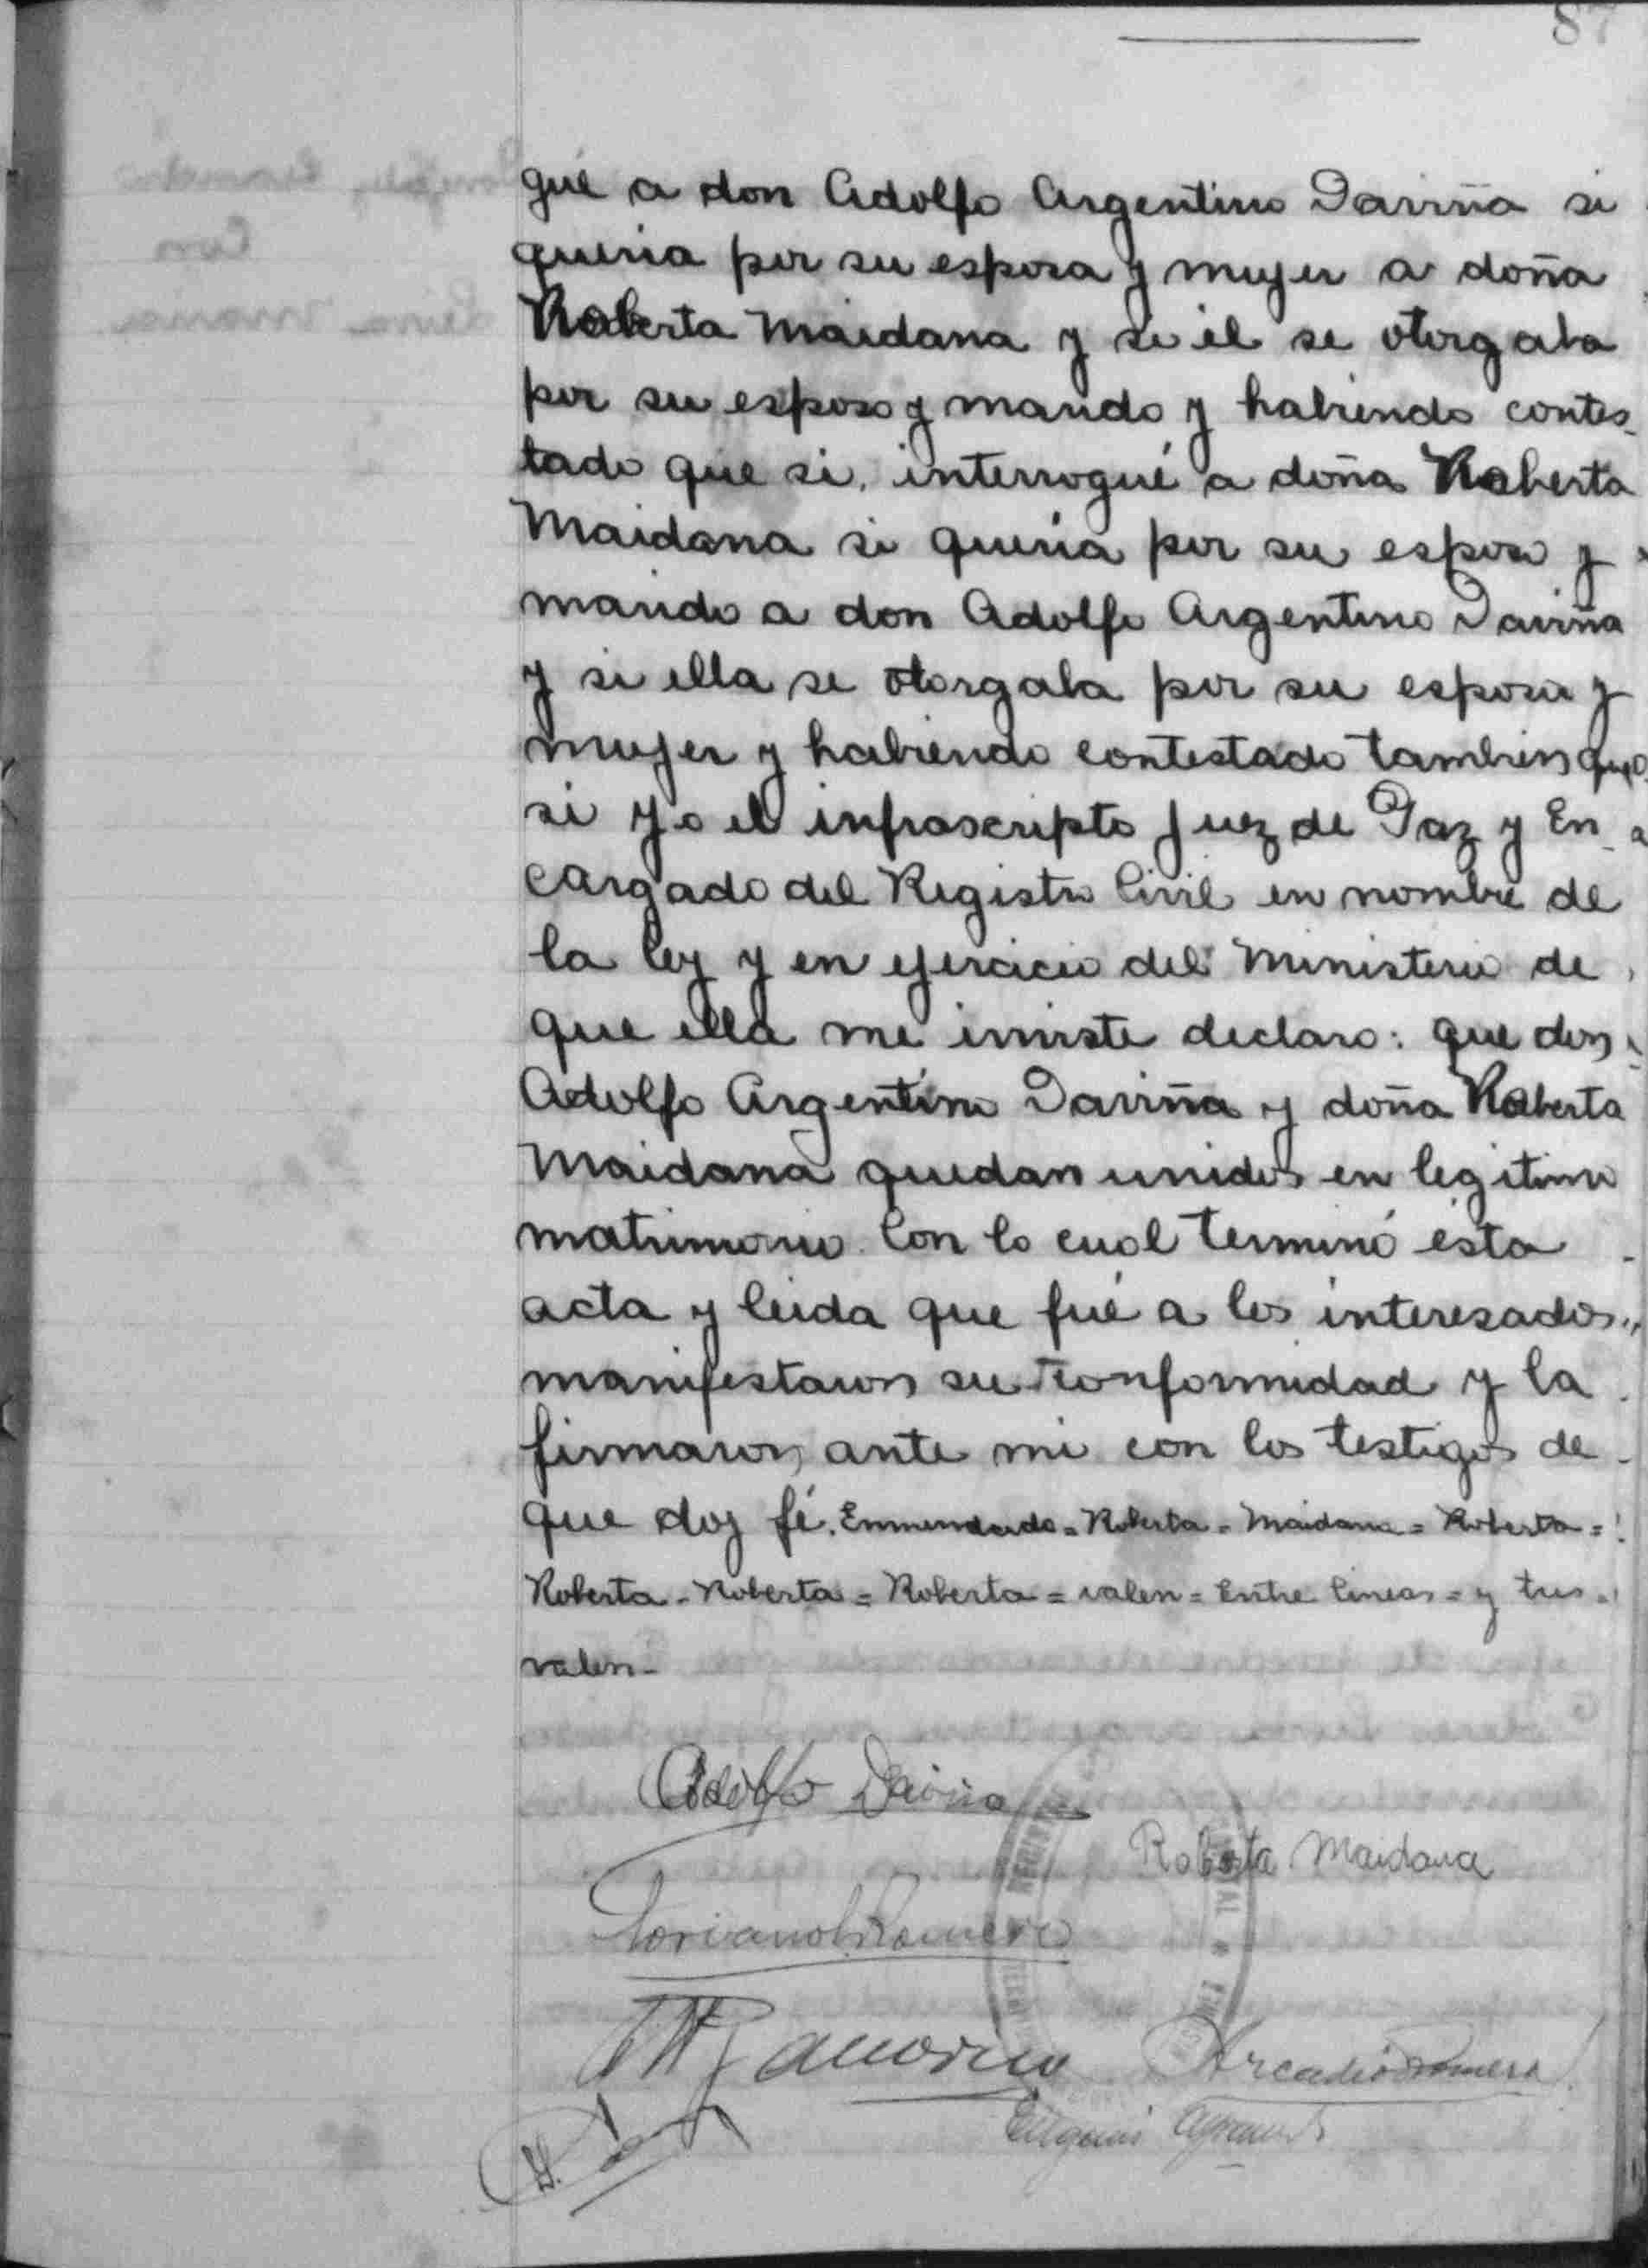 87
gué a don Adolfo Argentino Daviña si
quería por su esposa y mujer a doña
Roberta Maidana y si él se otorgaba
por su esposo y marido y habiendo contes_
tado que si, interrogué a doña Roberta
Maidana si quería por su esposo y
marido a don Adolfo Argentino Daviña
y si ella se otorgaba por su esposa y
mujer y habiendo contestado tambien que
si yo el infrascripto Juez de Paz y En_
cargado del Registro Civil en nombre de
la ley y en ejercicio del Ministerio de
que ella me inviste declaro: que don
Adolfo Argentino Daviña y doña Roberta
Maidana quedan unidos en legitimo
matrimonio. Con lo cual terminó ésta
acta y leida que fué a los interesados,
manifestaron su conformidad y la
firmaron ante mi con los testigos de
que doy fé. Enmendado = Roberta = Maidana = Roberta =
Roberta - Roberta = Roberta = valen = Entre lineas = y tres =
valen -
Adolfo Daviña
Roberta Maidana
Romero
Arcadio Romero
Eugenio